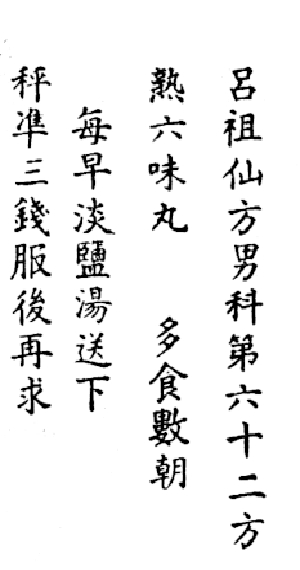 呂祖仙方男科第六十二方
熟六味丸 多食數朝
每早淡鹽湯送下
秤準三錢服後再求